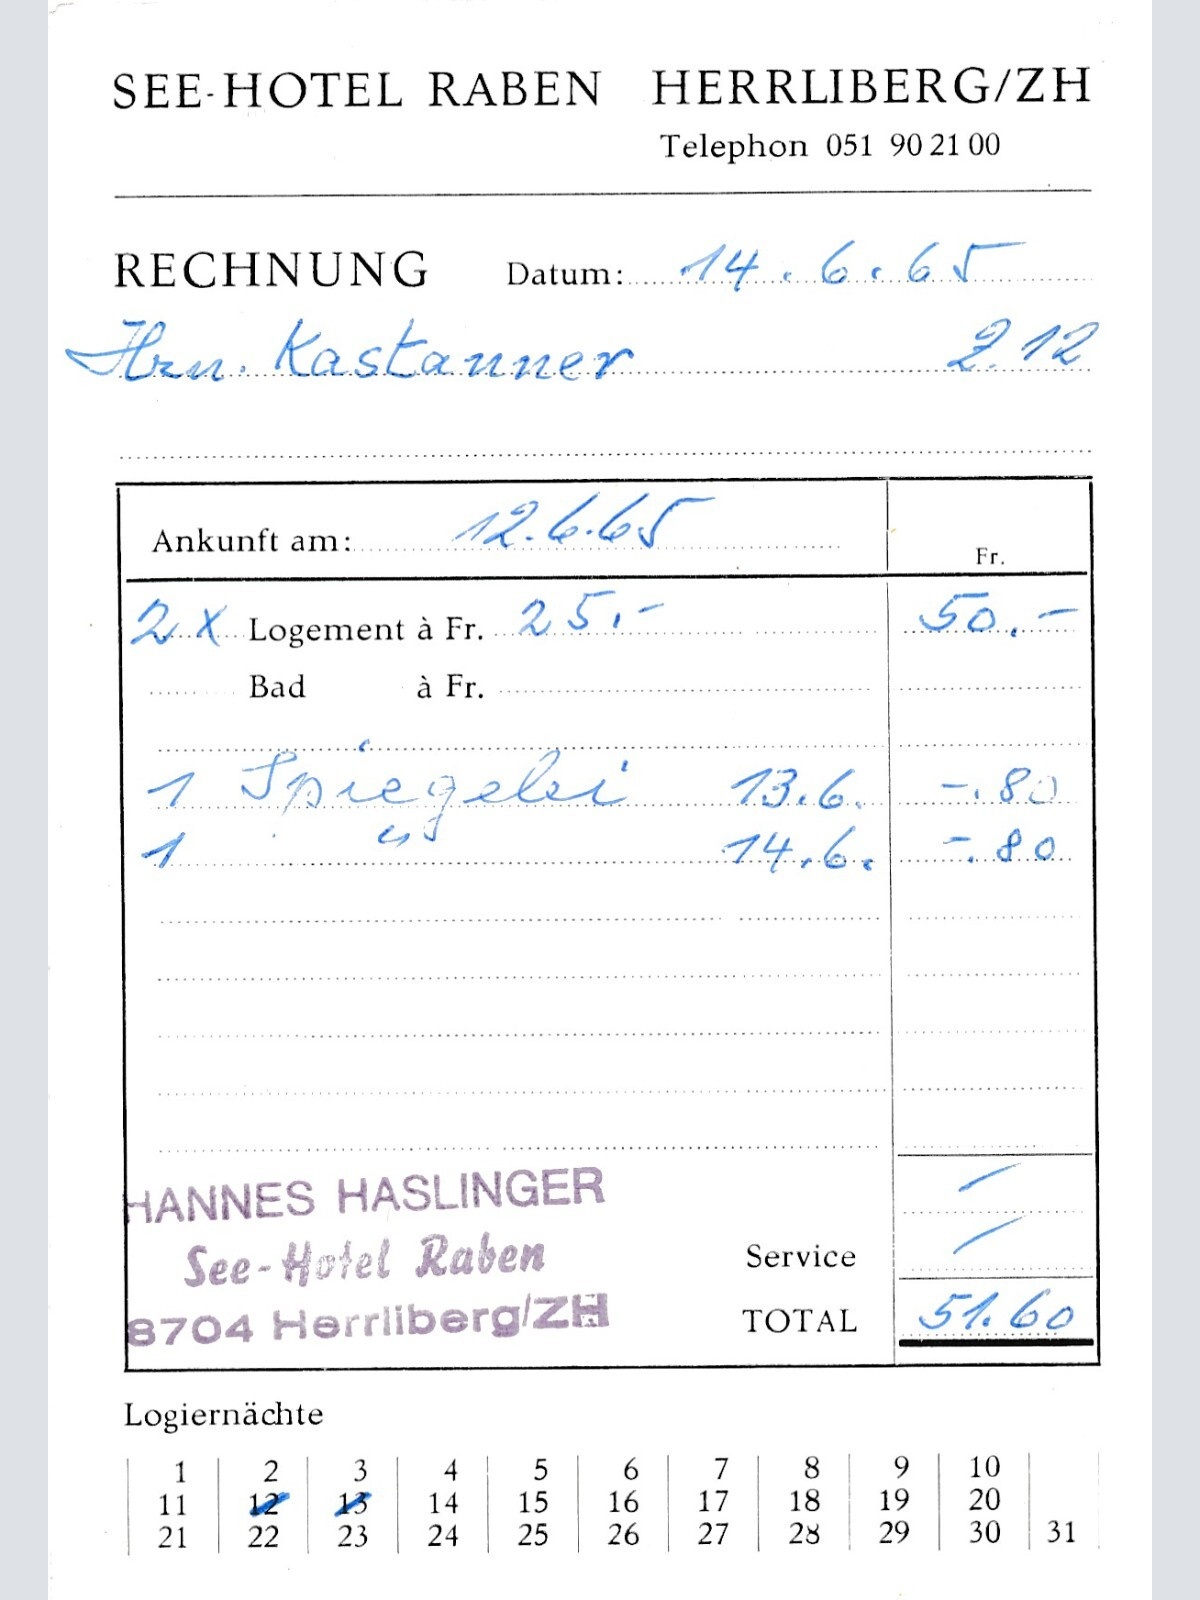 SEE-HOTEL RABEN HERRLIBERG/ZH
Telephon 051 90 21 00
RECHNUNG Datum: 14.6.65
Hrn. Kastanner Z.12
Ankunft am: 12.6.65
Fr.
2 x Logement à Fr. 25.- 50.-
Bad à Fr.
1 Spiegelei 13.6. -.80
1 " 14.6. -.80
HANNES HASLINGER
See-Hotel Raben
8704 Herrliberg/ZH
Service
TOTAL 51.60
Logiernächte
1 2 3 4 5 6 7 8 9 10
11 12 13 14 15 16 17 18 19 20
21 22 23 24 25 26 27 28 29 30 31